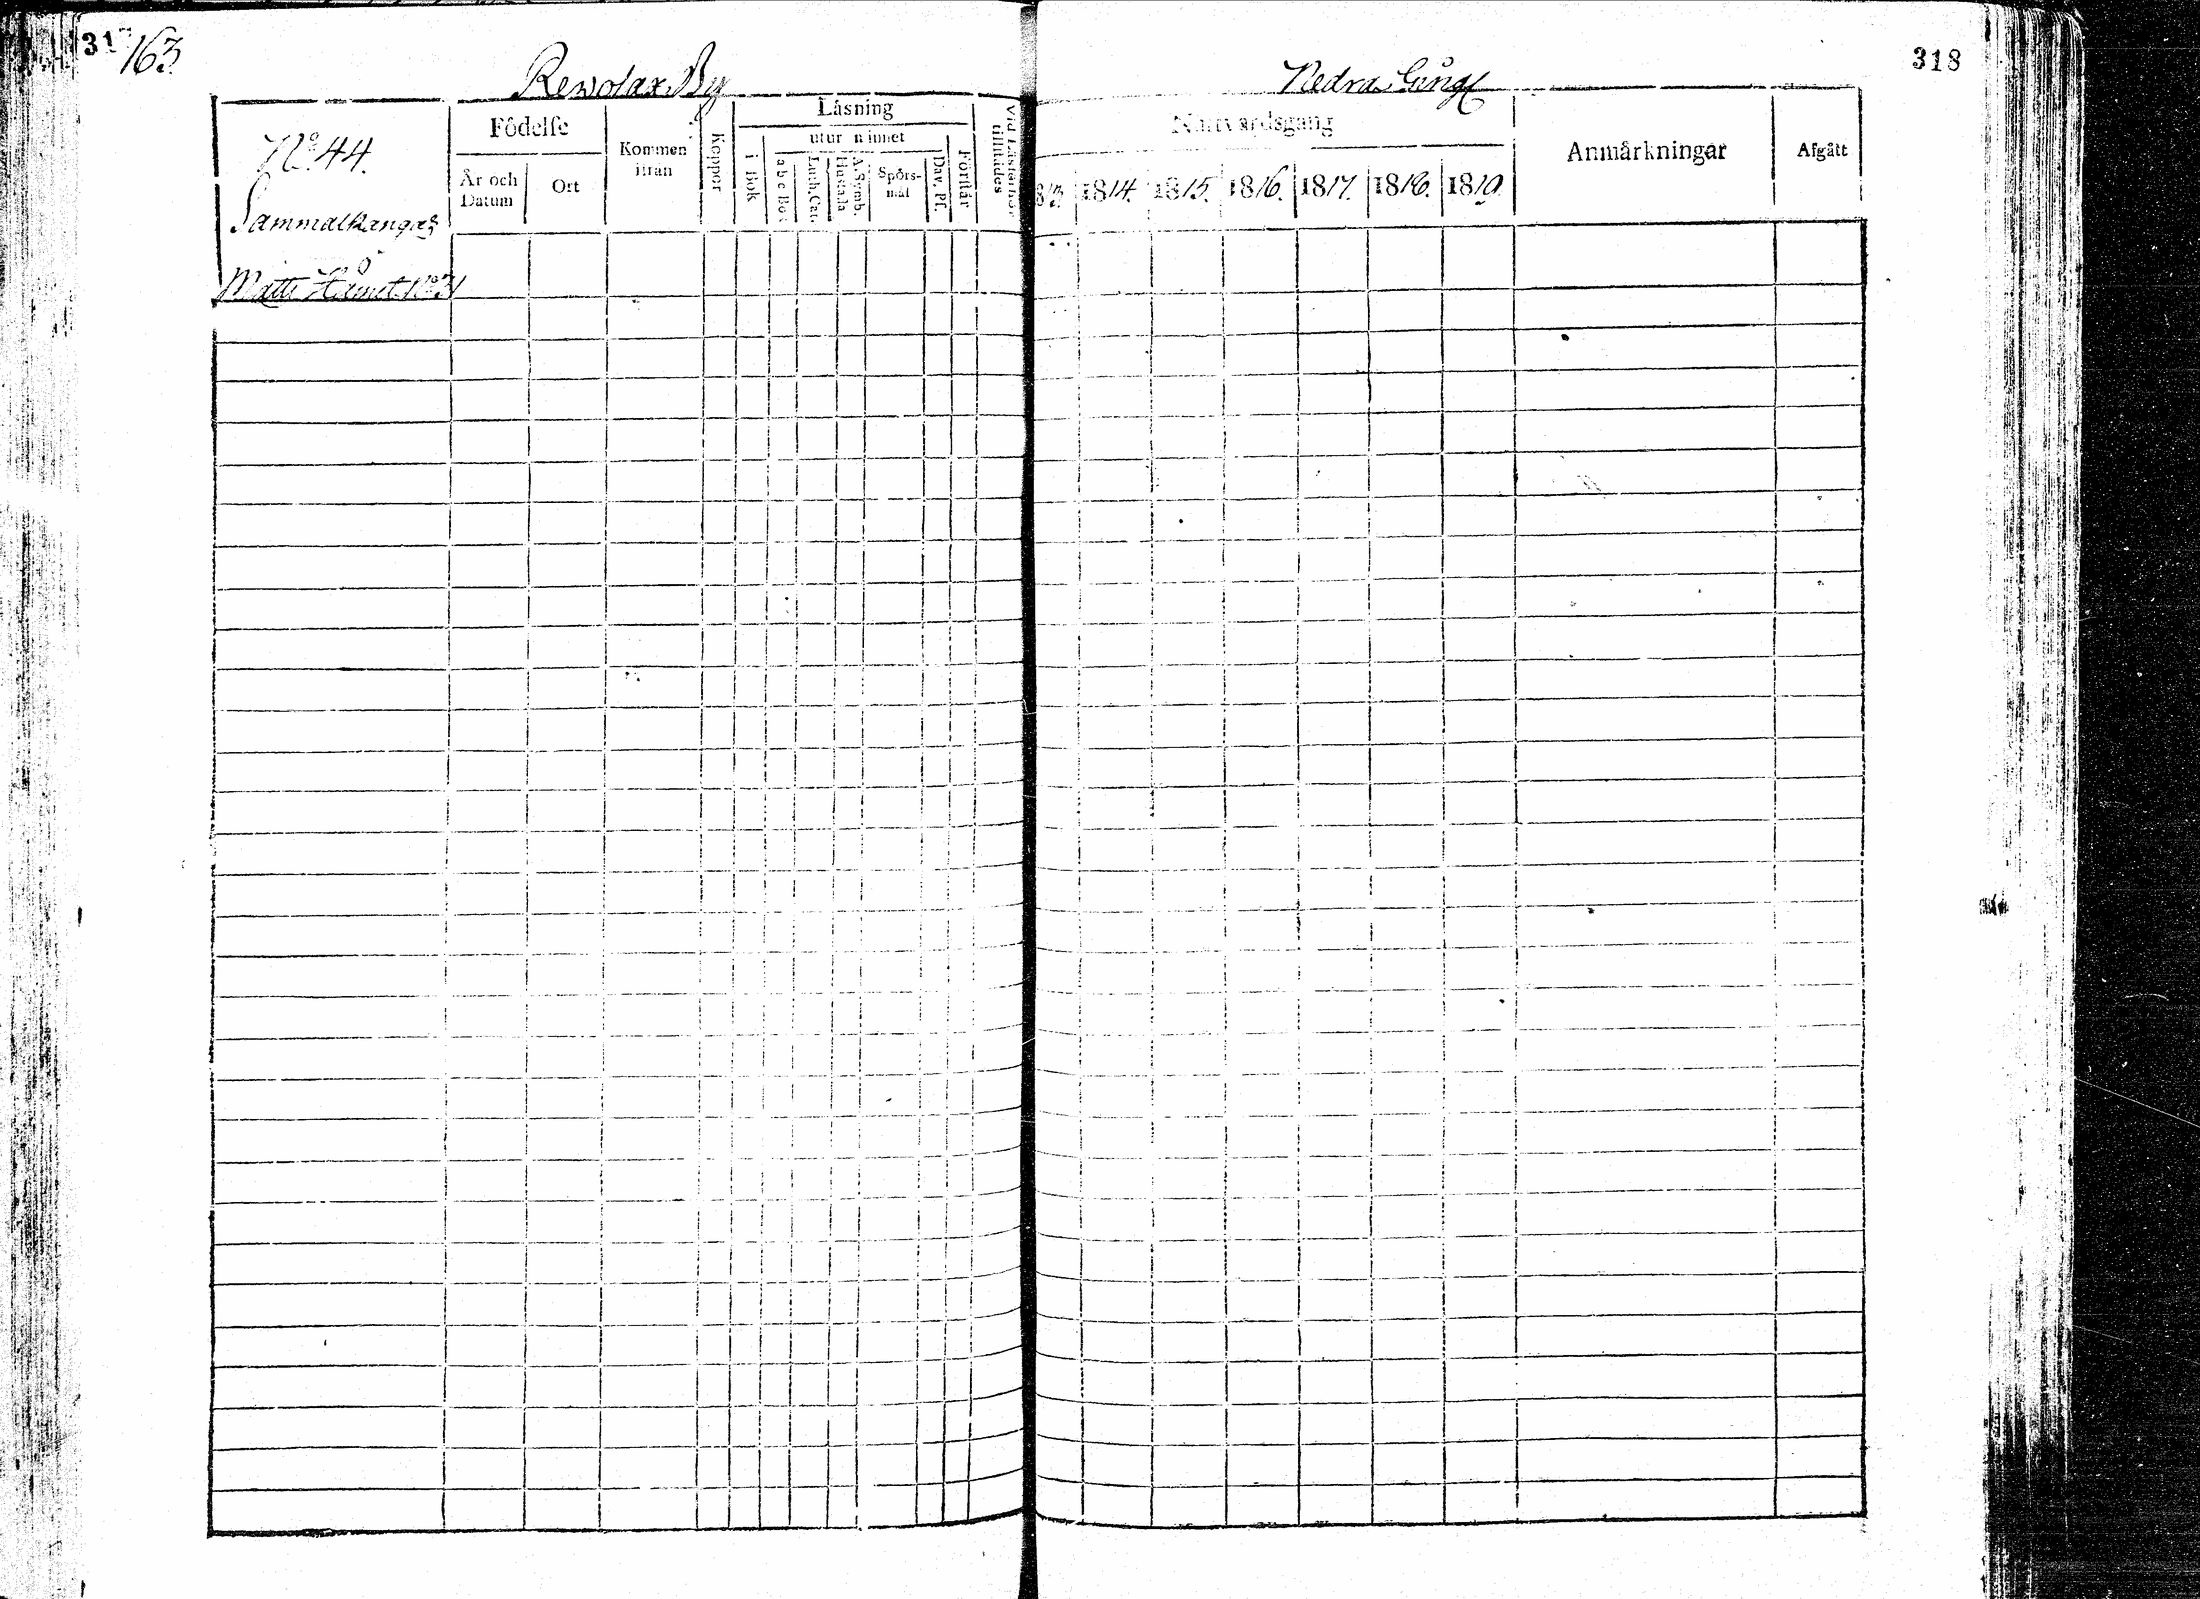 317
163
318
Rewolax By
Nedra
No 44.
Sammalkangas
Matti No 31
Födelse
År och Datum
Ort
Kommen ifrån
Koppor
Läsning
utur minnet
i Bok
a b c Bok
Luth. Cat.
Hustafla
A. Symb.
Spörsmål
Dav. Ps.
Förstår
Vid Läsförhör tillstädes
Nattvardsgång
1813
1814.
1815.
1816.
1817.
1818.
1819.
Anmärkningar
Afgått